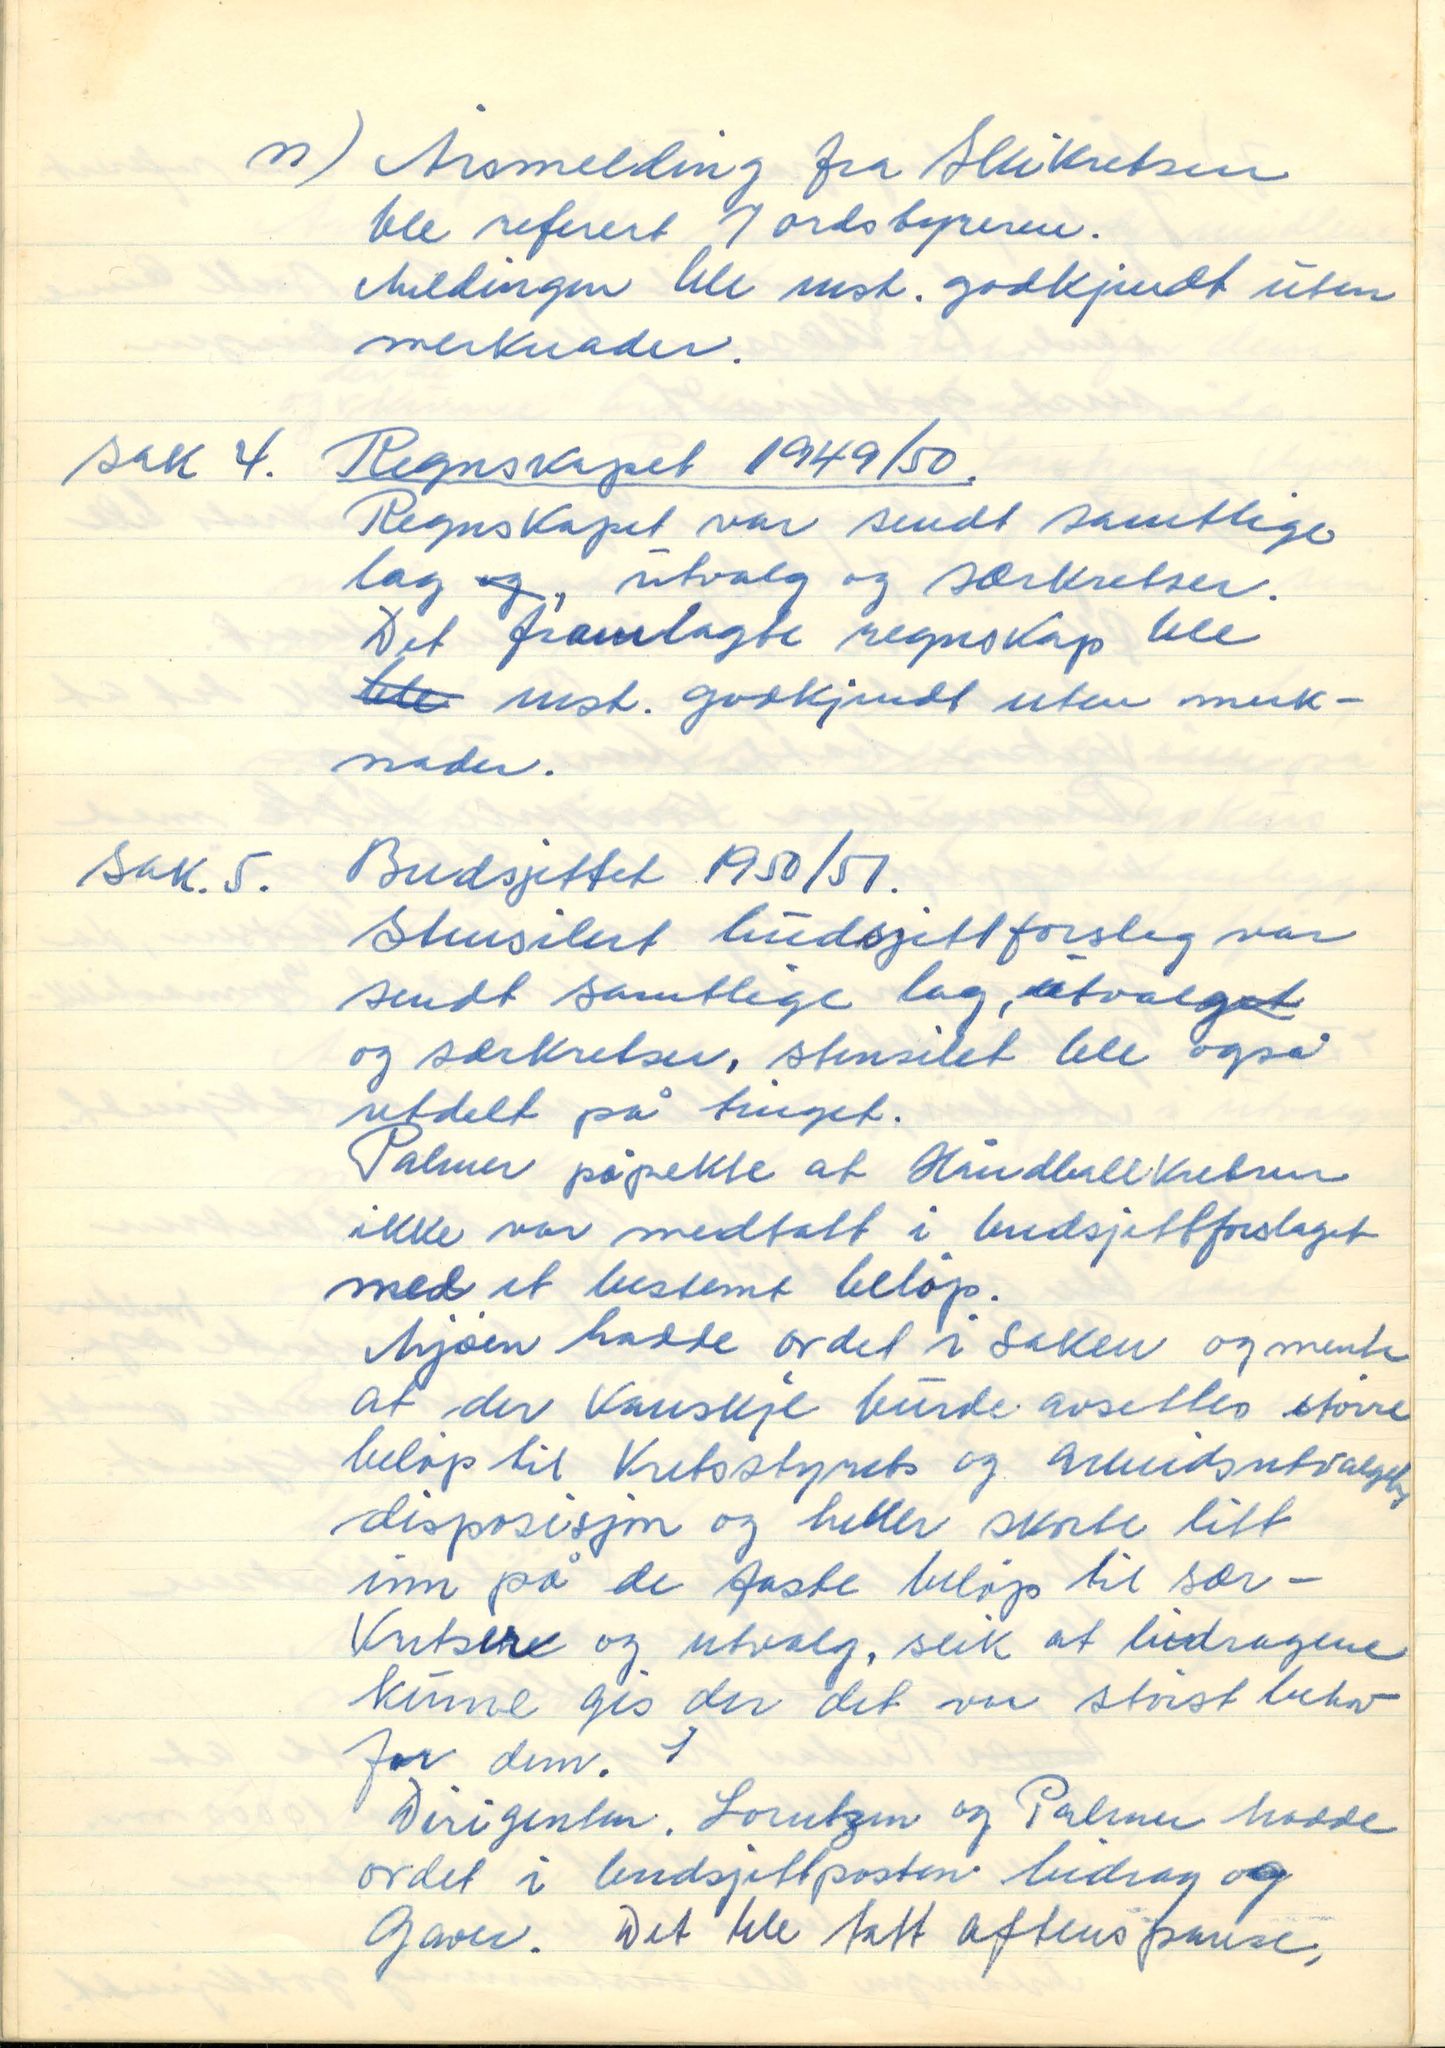 n) Årsmelding fra Skikretsen
ble referert / ordstyreren.
Meldingen ble enst. godkjendt uten
merknader.
Sak 4. Regnskapet 1949/50.
Regnskapet var sendt samtlige
lag og, utvalg og særkretser.
Det framlagte regnskap ble
ble enst. godkjendt uten merk-
nader.
Sak. 5. Budsjettet 1950/51.
Stensilert budsjettforslag var
sendt samtlige lag, utvalget
og særkretser, stensilet ble også
utdelt på tinget.
Palmer påpekte at Håndballkretsen
ikke var medtatt i budsjettforslaget
med et bestemt beløp.
Mjøen hadde ordet i saken og mente
at der kanskje burde avsettes større
beløp til Kretsstyrets og Arbeidsutvalgets
disposisjon og heller skorte litt
inn på de faste beløp til sær-
kretsene og utvalg, slik at bidragene
kunne gis der det var størst behov
for dem.
Dirigenten. Lorentzen og Palmer hadde
ordet i budsjettposten bidrag og
Gaver. Det ble tatt aftenspause,